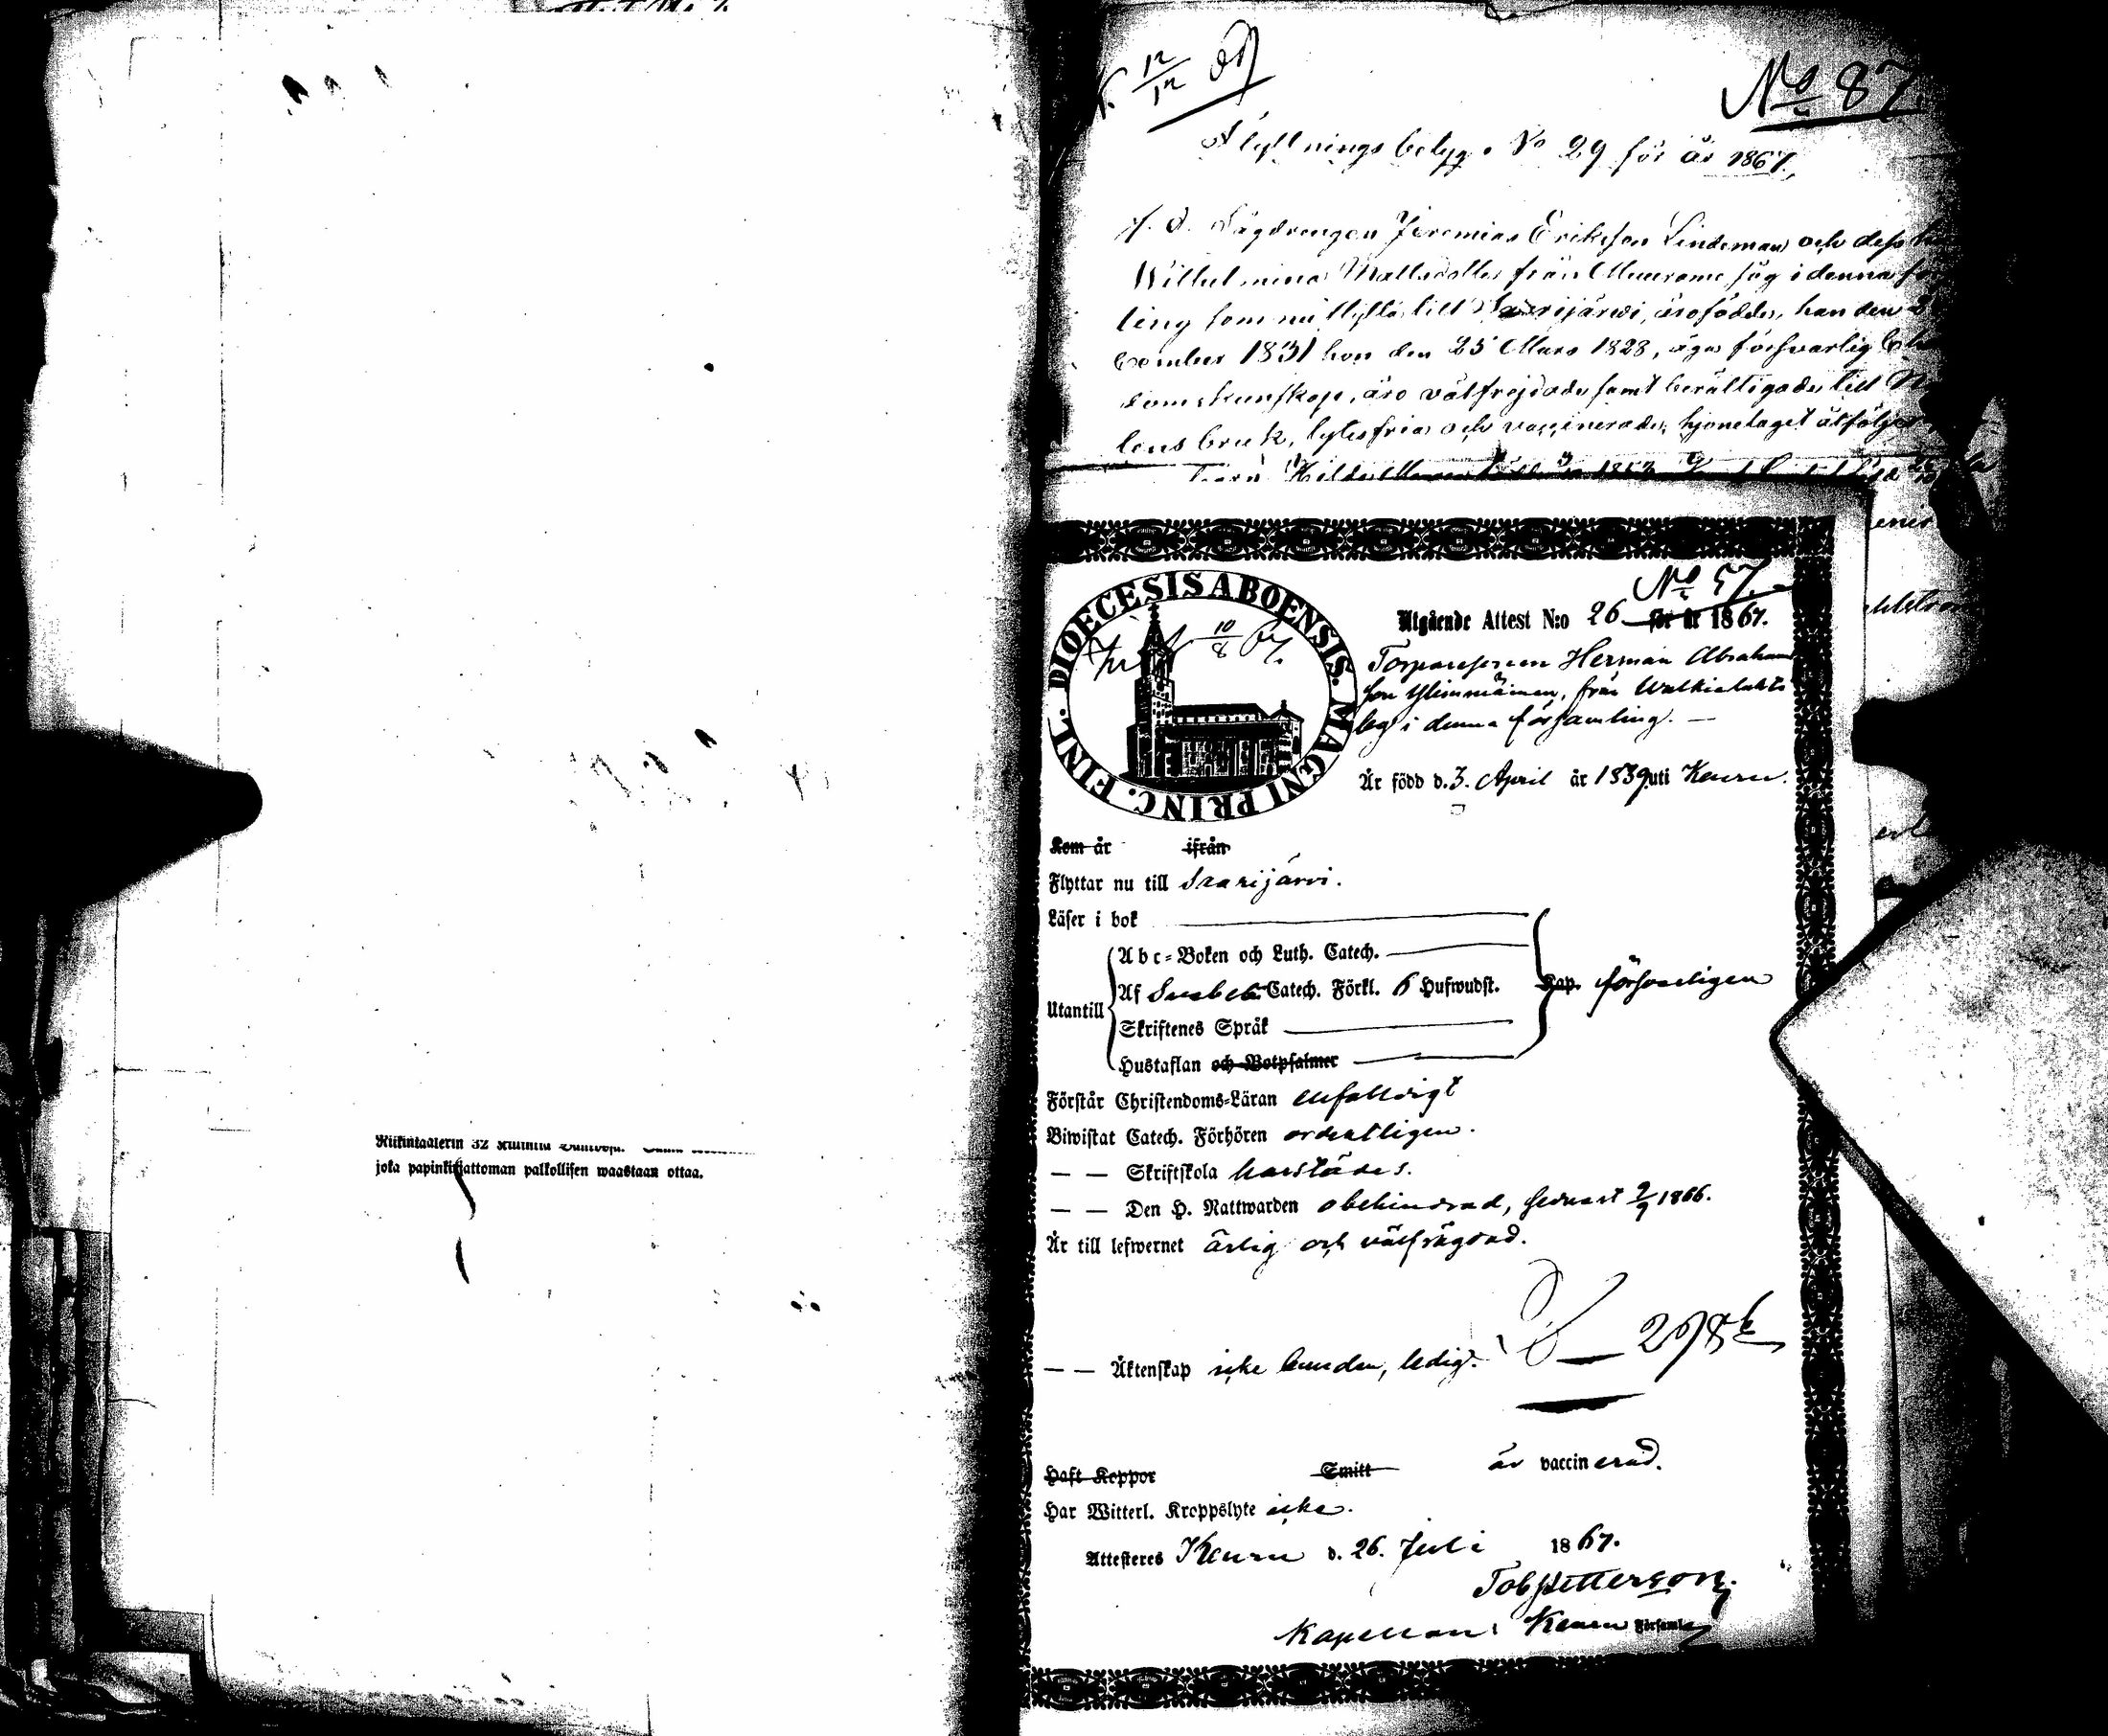 Riikintaalerin 32
joka papinkirjattoman palkollisen waastaan ottaa.
12/12 67
No 87.
Flyttningsbetyg No 29 för år 1867.
f. d. Sågdrengen Jeremias Eriksson Lindeman och dess
Wilhelmina Mattsdotter från Muurame såg i denna
ling som nu flytta till Saarijärwi, äro födde, han den
cember 1831 hon den 25 Mars 1828, äga försvarlig
domskunskap, äro välfrejdade samt berättigade till
dens bruk, lytesfria och vaccinerade; hjonelaget åtföljes
Hilda
DIOECESIS ABOENSIS. MAGNI PRINC. FINL.
10/8 67.
No 57.
Utgående Attest N:o 26 för år 1867.
Torparesonen Herman Abraham
son Ylimmäinen, från Walkialahts
by i denna församling. —
Är född d. 3. April år 1839 uti Keuru.
Kom år ifrån
Flyttar nu till Saarijärvi.
Läser i bok
Utantill
Abc-Boken och Luth. Catech.
Af Svebel. Catech. Förkl. 6 Hufwudst. Kap. försvarligen
Skriftenes Språk
Hustaflan och Botpsalmer
Förstår Christendoms-Läran enfaldigt
Biwistat Catech. Förhören ordentligen.
— — Skriftskola
— — Den H. Nattwarden obehindrad, senast 2/9 1866.
Är till lefwernet ärlig och välfrägdad.
— — Äktenskap icke bunden, ledig.
Haft Koppor Smitt är vaccinerad.
Har Witterl. Kroppslyte icke.
Attesteres Keuru d. 26. Juli 1867.
Tob Petterson.
Kapellan i Keuru Församl